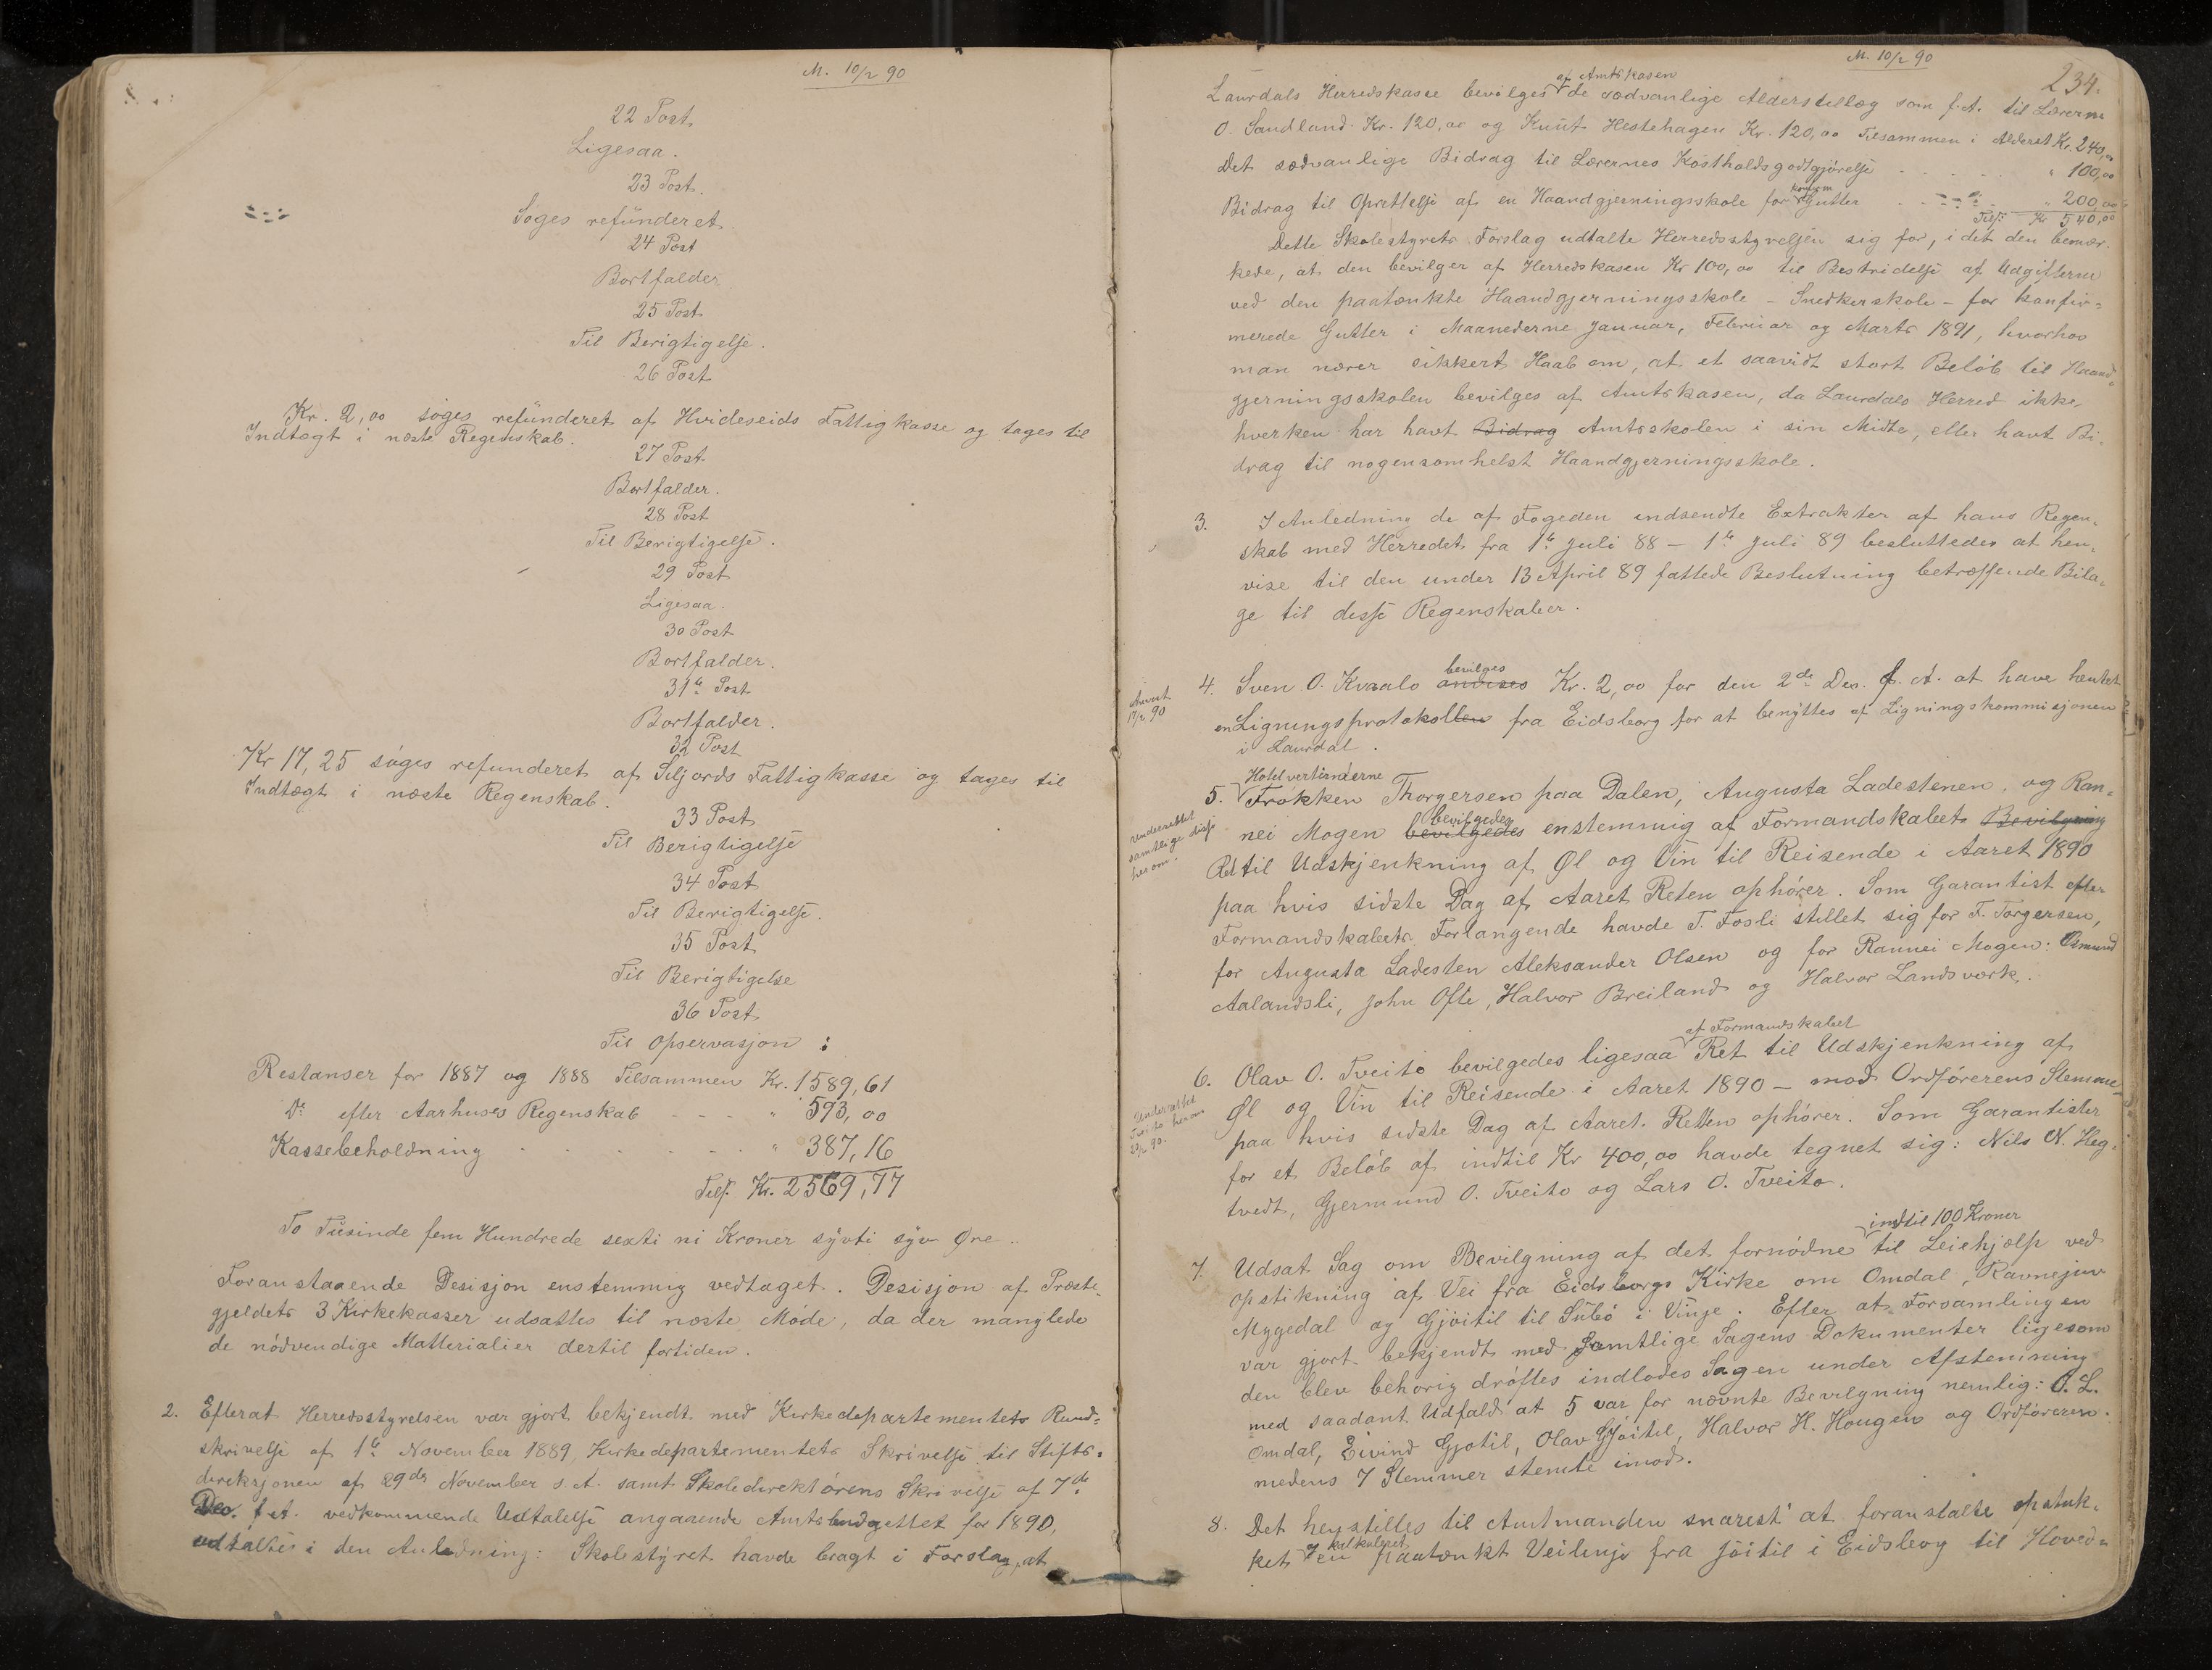 M. 10/2 90
22 Post.
Ligesaa.
23 Post.
Søges refunderet.
24 Post
Bortfalder.
25 Post
Til Berigtigelse.
26 Post
Kr. 2,00 søges refunderet af Hvideseids Fattigkasse og tages til
Indtægt i næste Regnskab.
27 Post
Bortfalder.
28 Post
Til Berigtigelse.
29 Post
Ligesaa.
30 Post
Bortfalder.
31te Post
Bortfalder.
32 Post
Kr 17,25 søges refunderet af Siljords Fattigkasse og tages til
Indtægt i næste Regenskab.
33 Post
Til Berigtigelse
34 Post
Til Berigtigelse.
35 Post
Til Berigtigelse
36 Post
Til Opservasjon :
Restanser for 1887 og 1888 Tilsammen Kr. 1589,61
Do efter Aarhuses Regenskab - - - " 593,00
Kassebeholdning . . . . - - - " 387,16
Tils. Kr. 2569,77
To Tusinde fem Hundrede sexti ni Kroner sytti syv Øre.
Foranstaaende Desisjon enstemmig vedtaget. Desisjon af Præste-
gjeldets 3 Kirkekasser udsattes til næste Møde, da der manglede
de nødvendige Matterialier dertil fortiden.
2. Efterat Herredsstyrelsen var gjort bekjendt med Kirkedepartementets Rund-
skrivelse af 1te November 1889, Kirkedepartementets Skrivelse til Stifts-
direksjonen af 29de November s. A. samt Skoledirektørens Skrivelse af 7de
Des. f. A. vedkommende Udtalelse angaaende Amtsbudgettet for 1890,
udtaltes i den Anledning: Skolestyret havde bragt i Forslag, at
M. 10/2 90
234.
af Amtskasen
Laurdals Herredskasse bevilges de sædvanlige Alderstillæg som f. A. til Lærerne
O. Sandland Kr. 120,00 og Knut Hestehagen Kr. 120,00 Tilsammen i Alderst Kr. 240,00
Det sædvanlige Bidrag til Lærernes Kostholdsgodtgjørelse . . . . " 100,00
konfirm
Bidrag til Oprettelse af en Haandgjerningsskole for Gutter . . - - - " 200,00
Tils: Kr 540,00
Dette Skolestyrets Forslag udtalte Herredsstyrelsen sig for, idet den bemær-
kede, at den bevilger af Herredskasen Kr 100,00 til Bestridelse af Udgifterne
ved den paatænkte Haandgjerningsskole - Snedkerskole - for konfir-
merede Gutter i Maanederne Januar, Februar og Marts 1891, hvorhos
man nærer sikkert Haab om, at et saavidt stort Beløb til Haand-
gjerningsskolen bevilges af Amtskasen, da Laurdals Herred ikke,
hverken har havt Bidrag Amtsskolen i sin Midte, eller havt Bi-
drag til nogensomhelst Haandgjerningsskole.
3. I Anledning de af Fogeden indsendte Extrakter af hans Regen-
skab med Herredet fra 1te Juli 88 - 1te Juli 89 besluttedes at hen-
vise til den under 13 April 89 fattede Beslutning betræffende Bila-
ge til disse Regenskaber.
Anvist
17/2 90
bevilges
4. Sven O. Kvaalo anvises Kr. 2,00 for den 2de Des. f. A. at have hentet
en Ligningsprotokollen fra Eidsborg for at benyttes af Ligningskommisjonen
i Laurdal.
Hotelvertinderne
5. Frøkken Thorgersen paa Dalen, Augusta Ladestenen, og Ran-
underrettet
samtlige disse
herom.
bevilgedes
nei Mogen bevilgedes enstemmig af Formandskabet Bevilgning
Ret til Udskjenkning af Øl og Vin til Reisende i Aaret 1890
paa hvis sidste Dag af Aaret Reten ophører. Som Garantist efter
Formandskabets Forlangende havde T. Fosli stillet sig for F. Torgersen,
for Augusta Ladesten Aleksander Olsen og for Rannei Mogen: Osmund
Aalandsli, John Ofte, Halvor Breiland og Halvor Landsværk.
af Formandskabet
6. Olav O. Tveito bevilgedes ligesaa Ret til Udskjenkning af
Underrettet
Tveito herom
22/2 90.
Øl og Vin til Reisende i Aaret 1890 - mod Ordførerens Stemme
paa hvis sidste Dag af Aaret. Retten ophører. Som Garantister
for et Beløb af indtil Kr 400,00 havde tegnet sig: Nils N. Heg-
tvedt, Gjermund O. Tveito og Lars O. Tveito.
indtil 100 Kroner
7. Udsat Sag om Bevilgning af det fornødne til Leiehjælp ved
opstikning af Vei fra Eidsborgs Kirke om Omdal, Ravnejuv
Mygedal og Gjøitil til Subø i Vinje. Efter at Forsamlingen
var gjort bekjendt med samtlige Sagens Dokumenter ligesom
den blev behørig drøftes indlodes Sagen under Afstemning
med saadant Udfald at 5 var for nævnte Bevilgning nemlig: O. L.
Omdal, Eivind Gjøtil, Olav Gjøitil, Halvor H. Hougen og Ordføreren.
medens 7 Stemmer stemte imod.
8. Det henstilles til Amtmanden snarest at foranstalte opstuk-
kalkuleret
ket en paatænkt Veilinje fra Jøitil i Eidsborg til Hoved-